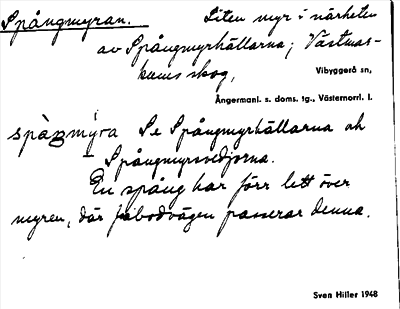 Spångmyran. Liten myr i närheten
av Spångmyrhällarna; Västmar-
kums skog,
Vibyggerå sn,
Ångermanl. s. doms. tg., Västernorrl. l.
Se Spångmyrhällarna och
Spångmyrsvedjorna.
En spång har förr lett över
myren, där fäbodvägen passerar denna.
Sven Hiller 1948